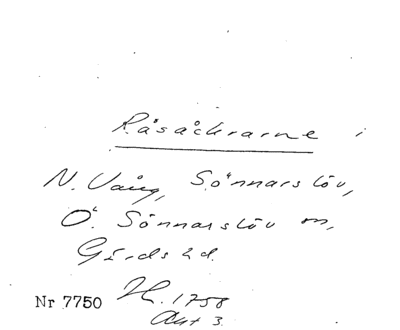 Råsåckrarne i
N. Vång, Sönnarslöv,
Ö. Sönnarslöv sn,
Gärds hd.
Nr 7750 H. 1758
Akt 3.